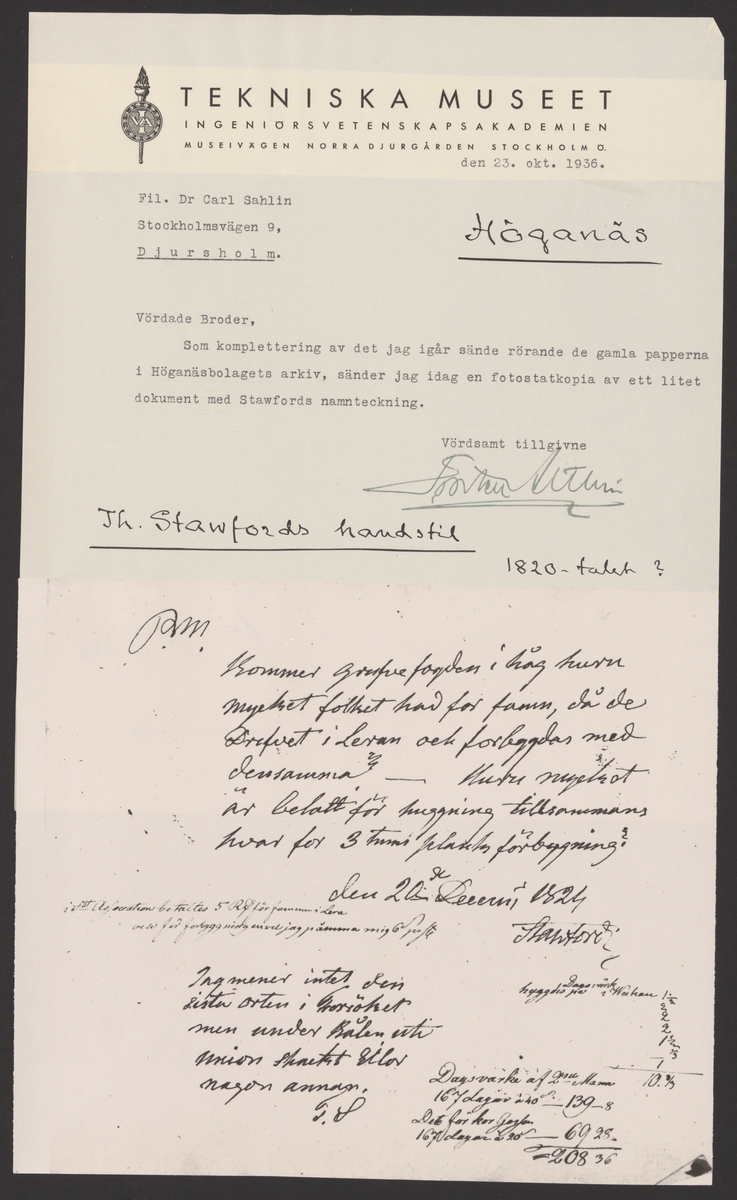 TEKNISKA MUSEET
INGENIÖRSVETENSKAPSAKADEMIEN
MUSEIVÄGEN NORRA DJURGÅRDEN STOCKHOLM Ö.
den 23. okt. 1936.
Fil. Dr Carl Sahlin
Stockholmsvägen 9,
Djursholm.
Höganäs
Vördade Broder,
Som komplettering av det jag igår sände rörande de gamla papperna
i Höganäsbolagets arkiv, sänder jag idag en fotostatkopia av ett litet
dokument med Stawfords namnteckning.
Vördsamt tillgivne
Torsten Althin
Th. Stawfords handstil
1820-talet ?
P.M.
Kommer grufvefogden i håg huru
mycket folket had for famn, då de
Drefvet i Leran och forbyggdas med
densamma? — Huru mycket
är betalt för huggning tillsammans
hvar for 3 tums planks förbygning?
den 20de Decemb 1824
Stawford
i Association betaltes 5 Rd för famnen i Lera
förbyggning jag påminna mig 6
Jag mener intet den
sista orten i försöket
men under Kålen uti
Union Shacht Eller
nagon annan.
T. S
Dagsvärk
hyggho på i Weckan 1 1/2
2
2
2
1
1
10.
Dagsvärke af 2ne Mann
167 dagar à 40 s. — 139-8
Dito för kor
167 dagar à 20 s — 69 28.
=208 36